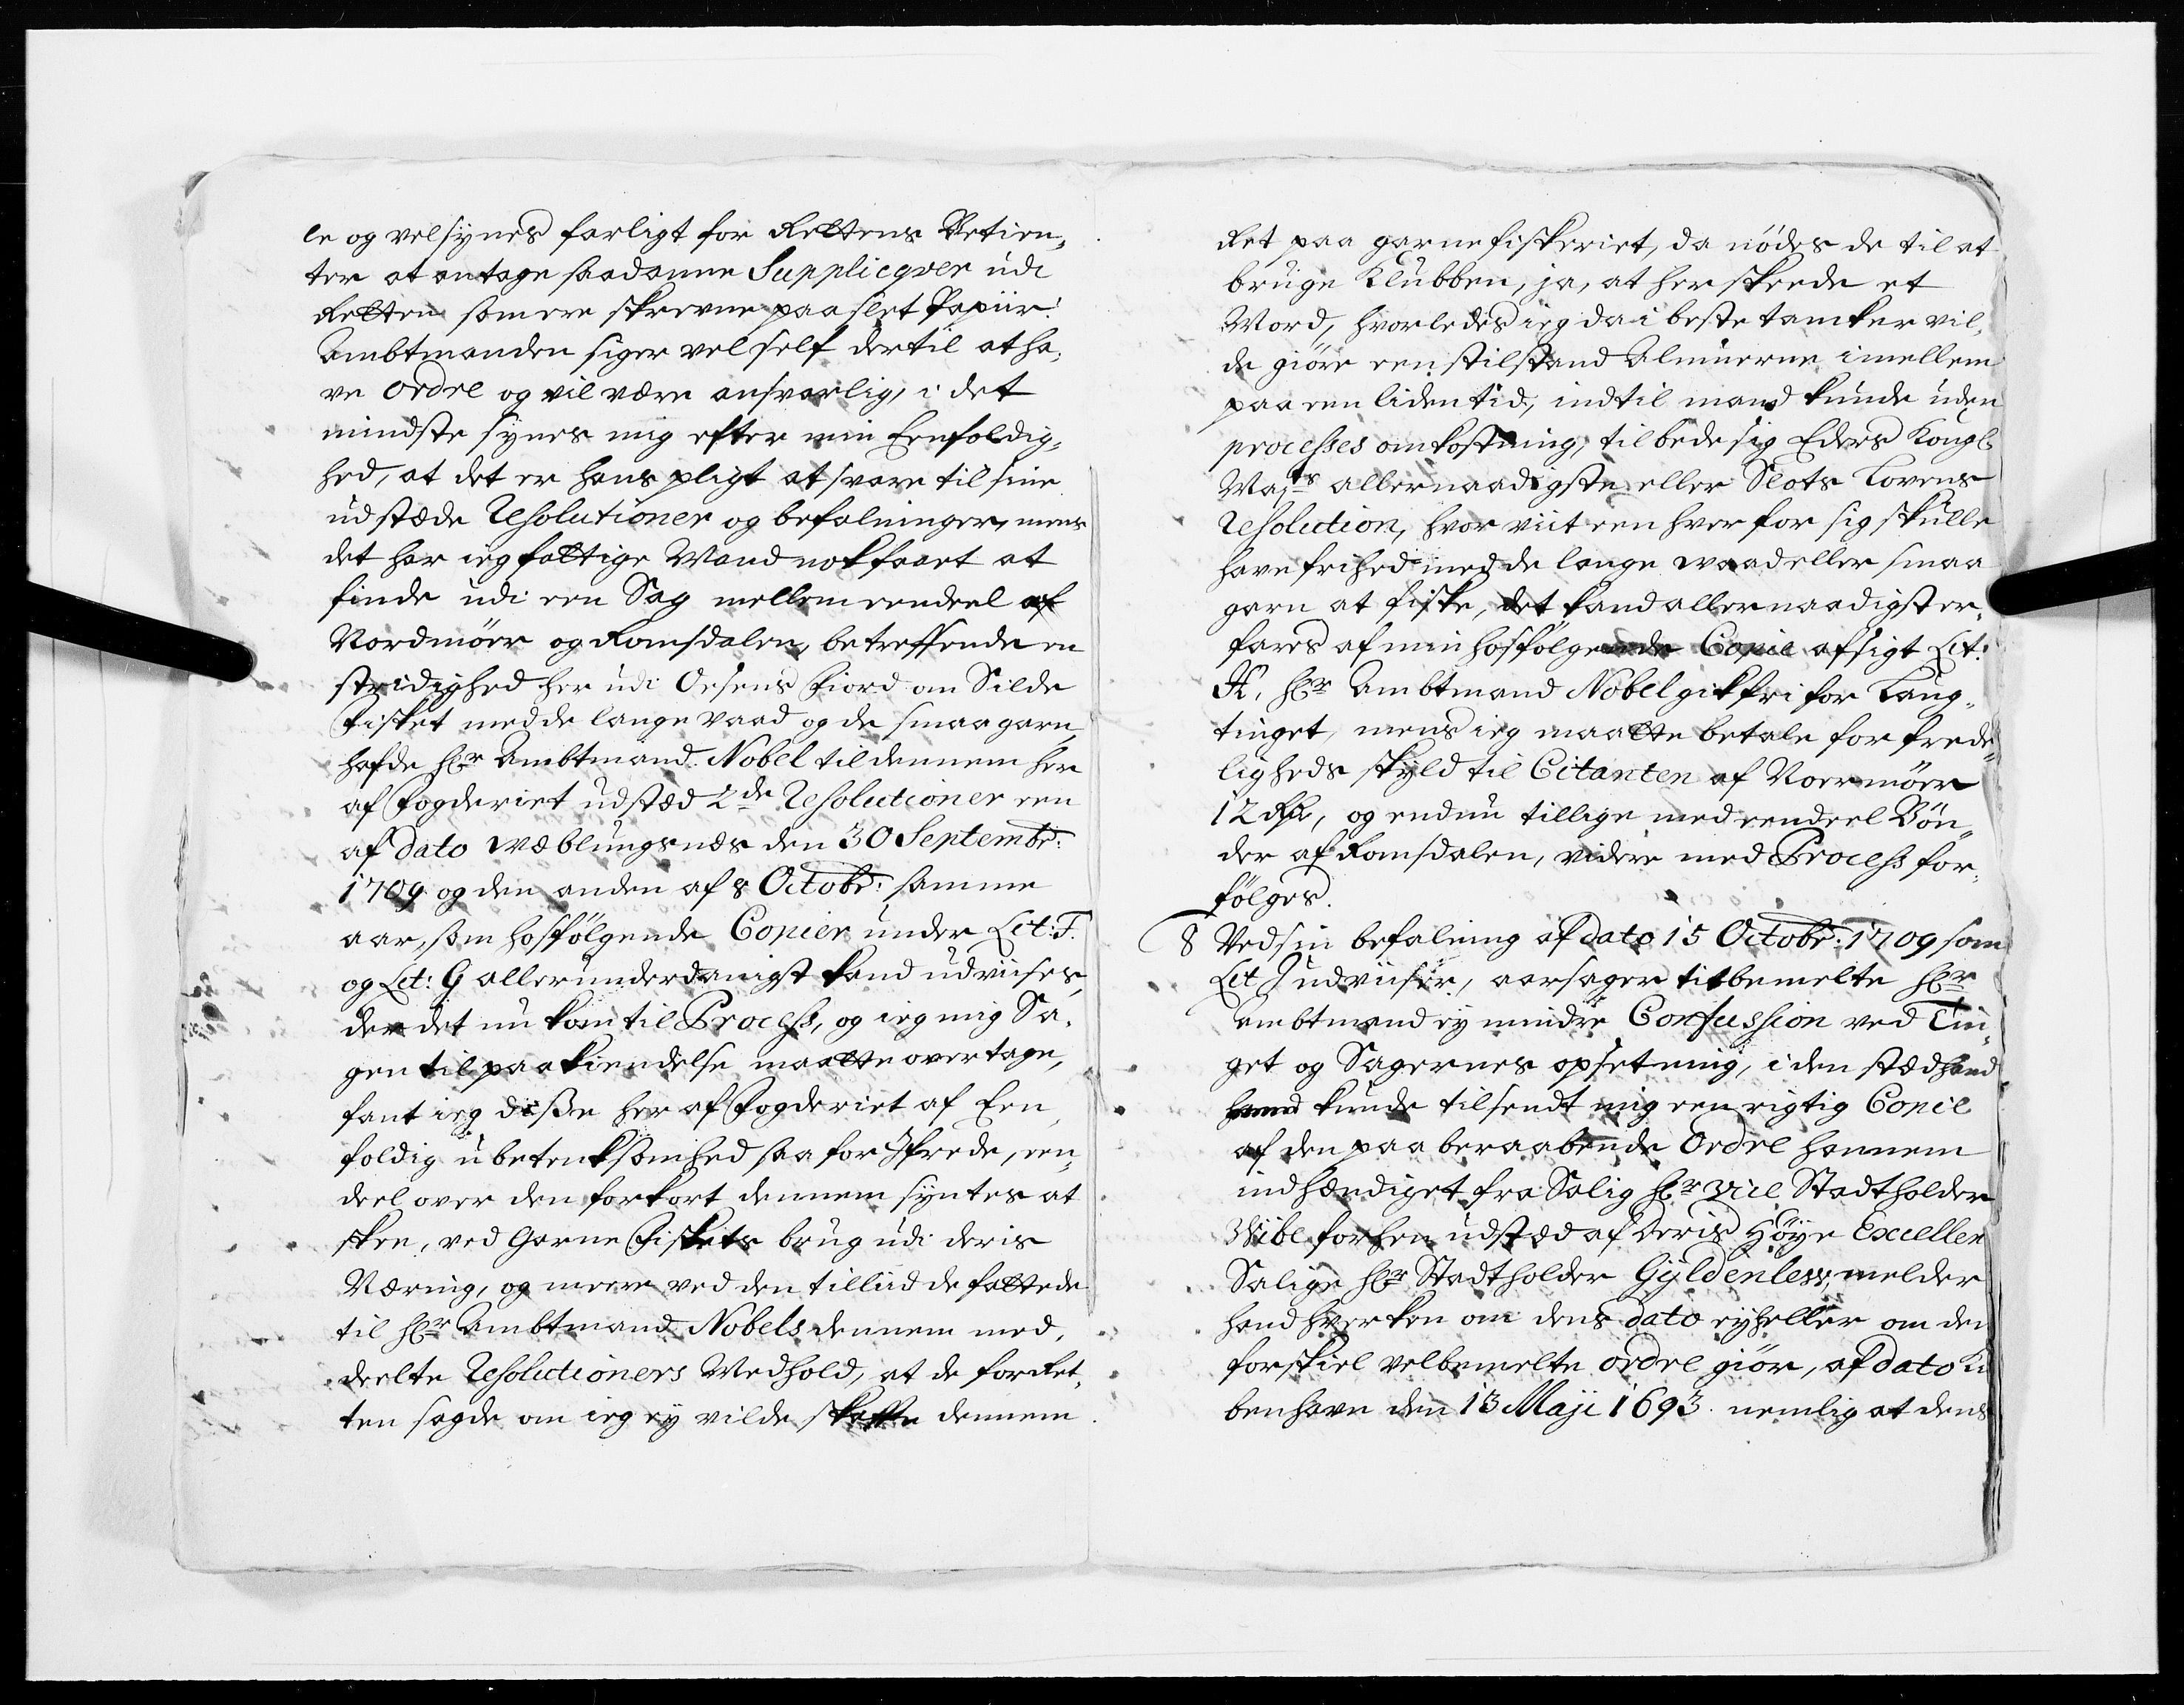 le og vel synes farligt for Rettens Betien,
ter at antage saadanne Supplicqver udi
Retten som ere skrevne paa slet Papiir!
Ambtmanden siger vel self dertil at ha,
ve Ordre og vil være ansvarlig, i det
mindste synes mig efter min Eenfoldig,
hed, at det er hans pligt at svare til sine
udstæde Resolutioner og befalninger, mens
det har ieg fattige Mand nok faaet at
finde udi een Sag mellem eendeel af
Nordmöer og Romsdalen, betreffende en
stridighed her udi Oesens Fiord om Silde
Fisket med de lange vaad og de smaa garn,
hafde Hr Ambtmand Nobel til dennem her
af Fogderiet udstæd 2de Resolutioner een
af dato Weblungsnæs den 30 Septembr:
1709 og den anden af 8 Octobr: samme
aar, som hosfölgende Copier under Lit: F.
og Lit: G allerunderdanigst kand udviises,
der det nu kom til Process, og ieg mig Sa,
gen til paakiendelse maatte overtage,
fant ieg disse her af Fogderiet af Een,
foldig ubetenksomhed saa for Ifrede, een,
deel over den forkort dennem syntes at
skee, ved Garne Fiskets brug udi deris
Næring, og meere ved den tilliid de fattede
til Hr Ambtmand Nobels dennem med,
deelte Resolutioners Medhold, at de for Ret,
ten sagde om ieg ey vilde skaffe dennem
Ret paa garnefiskeriet, da nödes de til at
bruge Klubben, ja, at her skeede et
Mord, hvorledes ieg da i beste tancker vil,
de giöre een stilstand Almuerne imellem
paa een liden tid, indtil mand kunde uden
processes omkostning, tilbede sig Eders Kongl
Majts allernaadigste eller Slots Lovens
Resolution, hvor viit een hver for sig skulle
have frihed med de lange waad eller smaa
garn at fiske, det kand allernaadigst er,
fares af min hosfölgende Copie afsigt Lit:
H, Hr Ambtmand Nobel gik fri for Laug,
tinget, mens ieg maatte betale for frede,
ligheds skyld til Citanten af Noermöer
12 Rd, og endnu tillige med eendeel Bön,
der af Romsdalen, videre med Process for,
fölges.
8 Ved sin befalning af dato 15 Octobr: 1709 som
Lit I udviiser, aarsager titbemelte Hr
Ambtmand ey mindre Confussion ved Tin,
get og Sagernes opsetning, i den stæd hand
hand kunde tilsendt mig een rigtig Copie
af den paaberaabende Ordre hannem
indhændiget fra Salig Hr Vice Stadtholder
Wibe forhen udstæd af Deris Höye Excellen
Salige Hr Stadtholder Gyldenlew, melder
hand hverken om dens dato ey heller om den
forskiel velbemelte ordre giör, af dato Kiö
benhavn den 13 Maji 1693. nemlig at dens